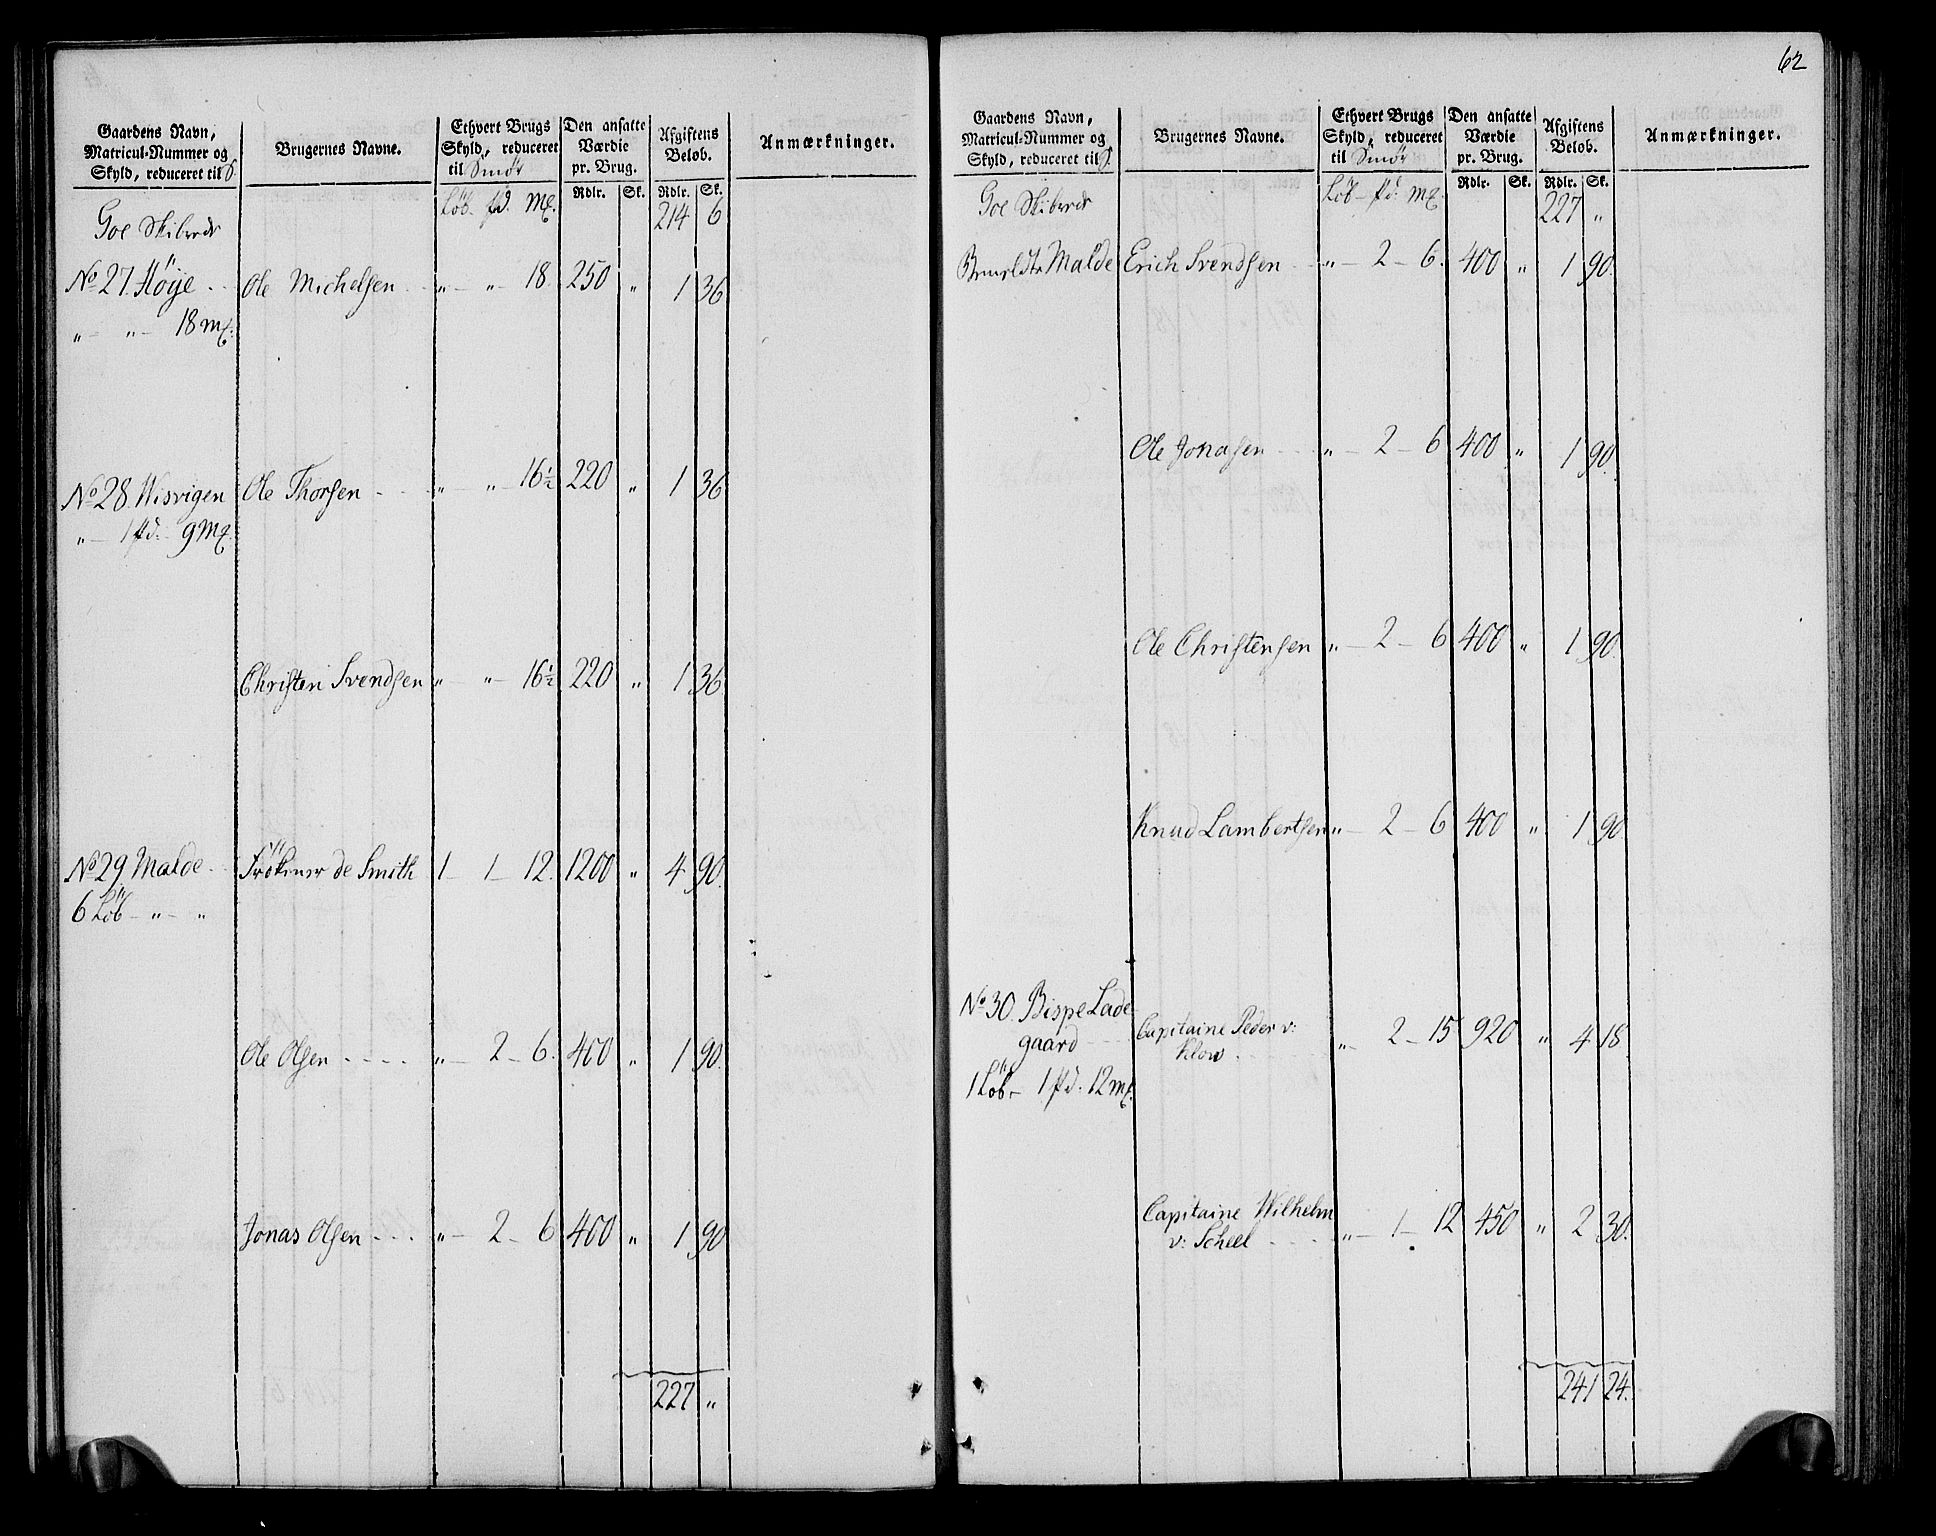 62
Gaardens Navn, Matricul-Nummer og Skyld, reduceret til S. Brugernes Navne. Ethvert Brugs Skyld, reduceret til Smör Den ansatte Værdie pr. Brug. Afgiftens Beløb. Anmærkninger.
Löb. pd. mk. Rdlr. Sk. Rdlr. Sk.
Goe Skibrede 214 6
No 27. Höÿe Ole Michelsen „ „ 18. 250 „ 1 36
„ „ 18 mk:
No 28. Wisvigen Ole Thorsen „ „ 16½ 220 „ 1 36
„ 1 pd. 9 mk
Christen Svendsen „ „ 16½ 220 „ 1 36
No 29 Malde Frökener de Smith 1 1 12. 1200 „ 4 90.
6 Löb „ „
Ole Olsen „ 2 6. 400 „ 1 90.
Jonas Olsen „ 2 6 400 „ 1 90
227 „
Gaardens Navn, Matricul-Nummer og Skyld, reduceret til S. Brugernes Navne. Ethvert Brugs Skyld, reduceret til Smör Den ansatte Værdie pr. Brug. Afgiftens Beløb. Anmærkninger.
Löb pd: mk. Rdlr. Sk. Rdlr. Sk.
Goe Skibrede 227 „
Malde Erich Svendsen „ 2 6. 400 „ 1 90.
Ole Jonasen „ 2 6 400 „ 1 90.
Ole Christensen „ 2 6 400 „ 1 90.
Knud Lambertsen „ 2 6 400 „ 1 90.
No 30. Bispe Lade-
gaard Capitaine Peder v: Klow „ 2 15 920 „ 4 18.
1 Löb 1 pd. 12 mk.
Capitaine Wilhelm
v: Scheel „ 1 12 450 „ 2 30.
241 24.